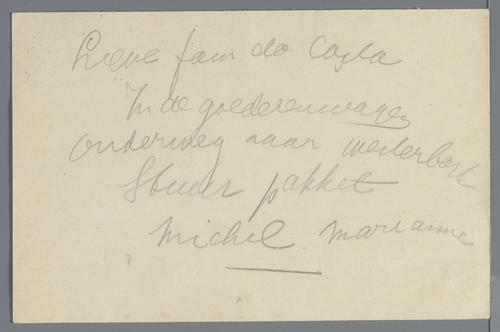 Lieve fam da Costa
In de goederenwagen
onderweg naar Westerbork
Stuur pakket
Michel Marianne